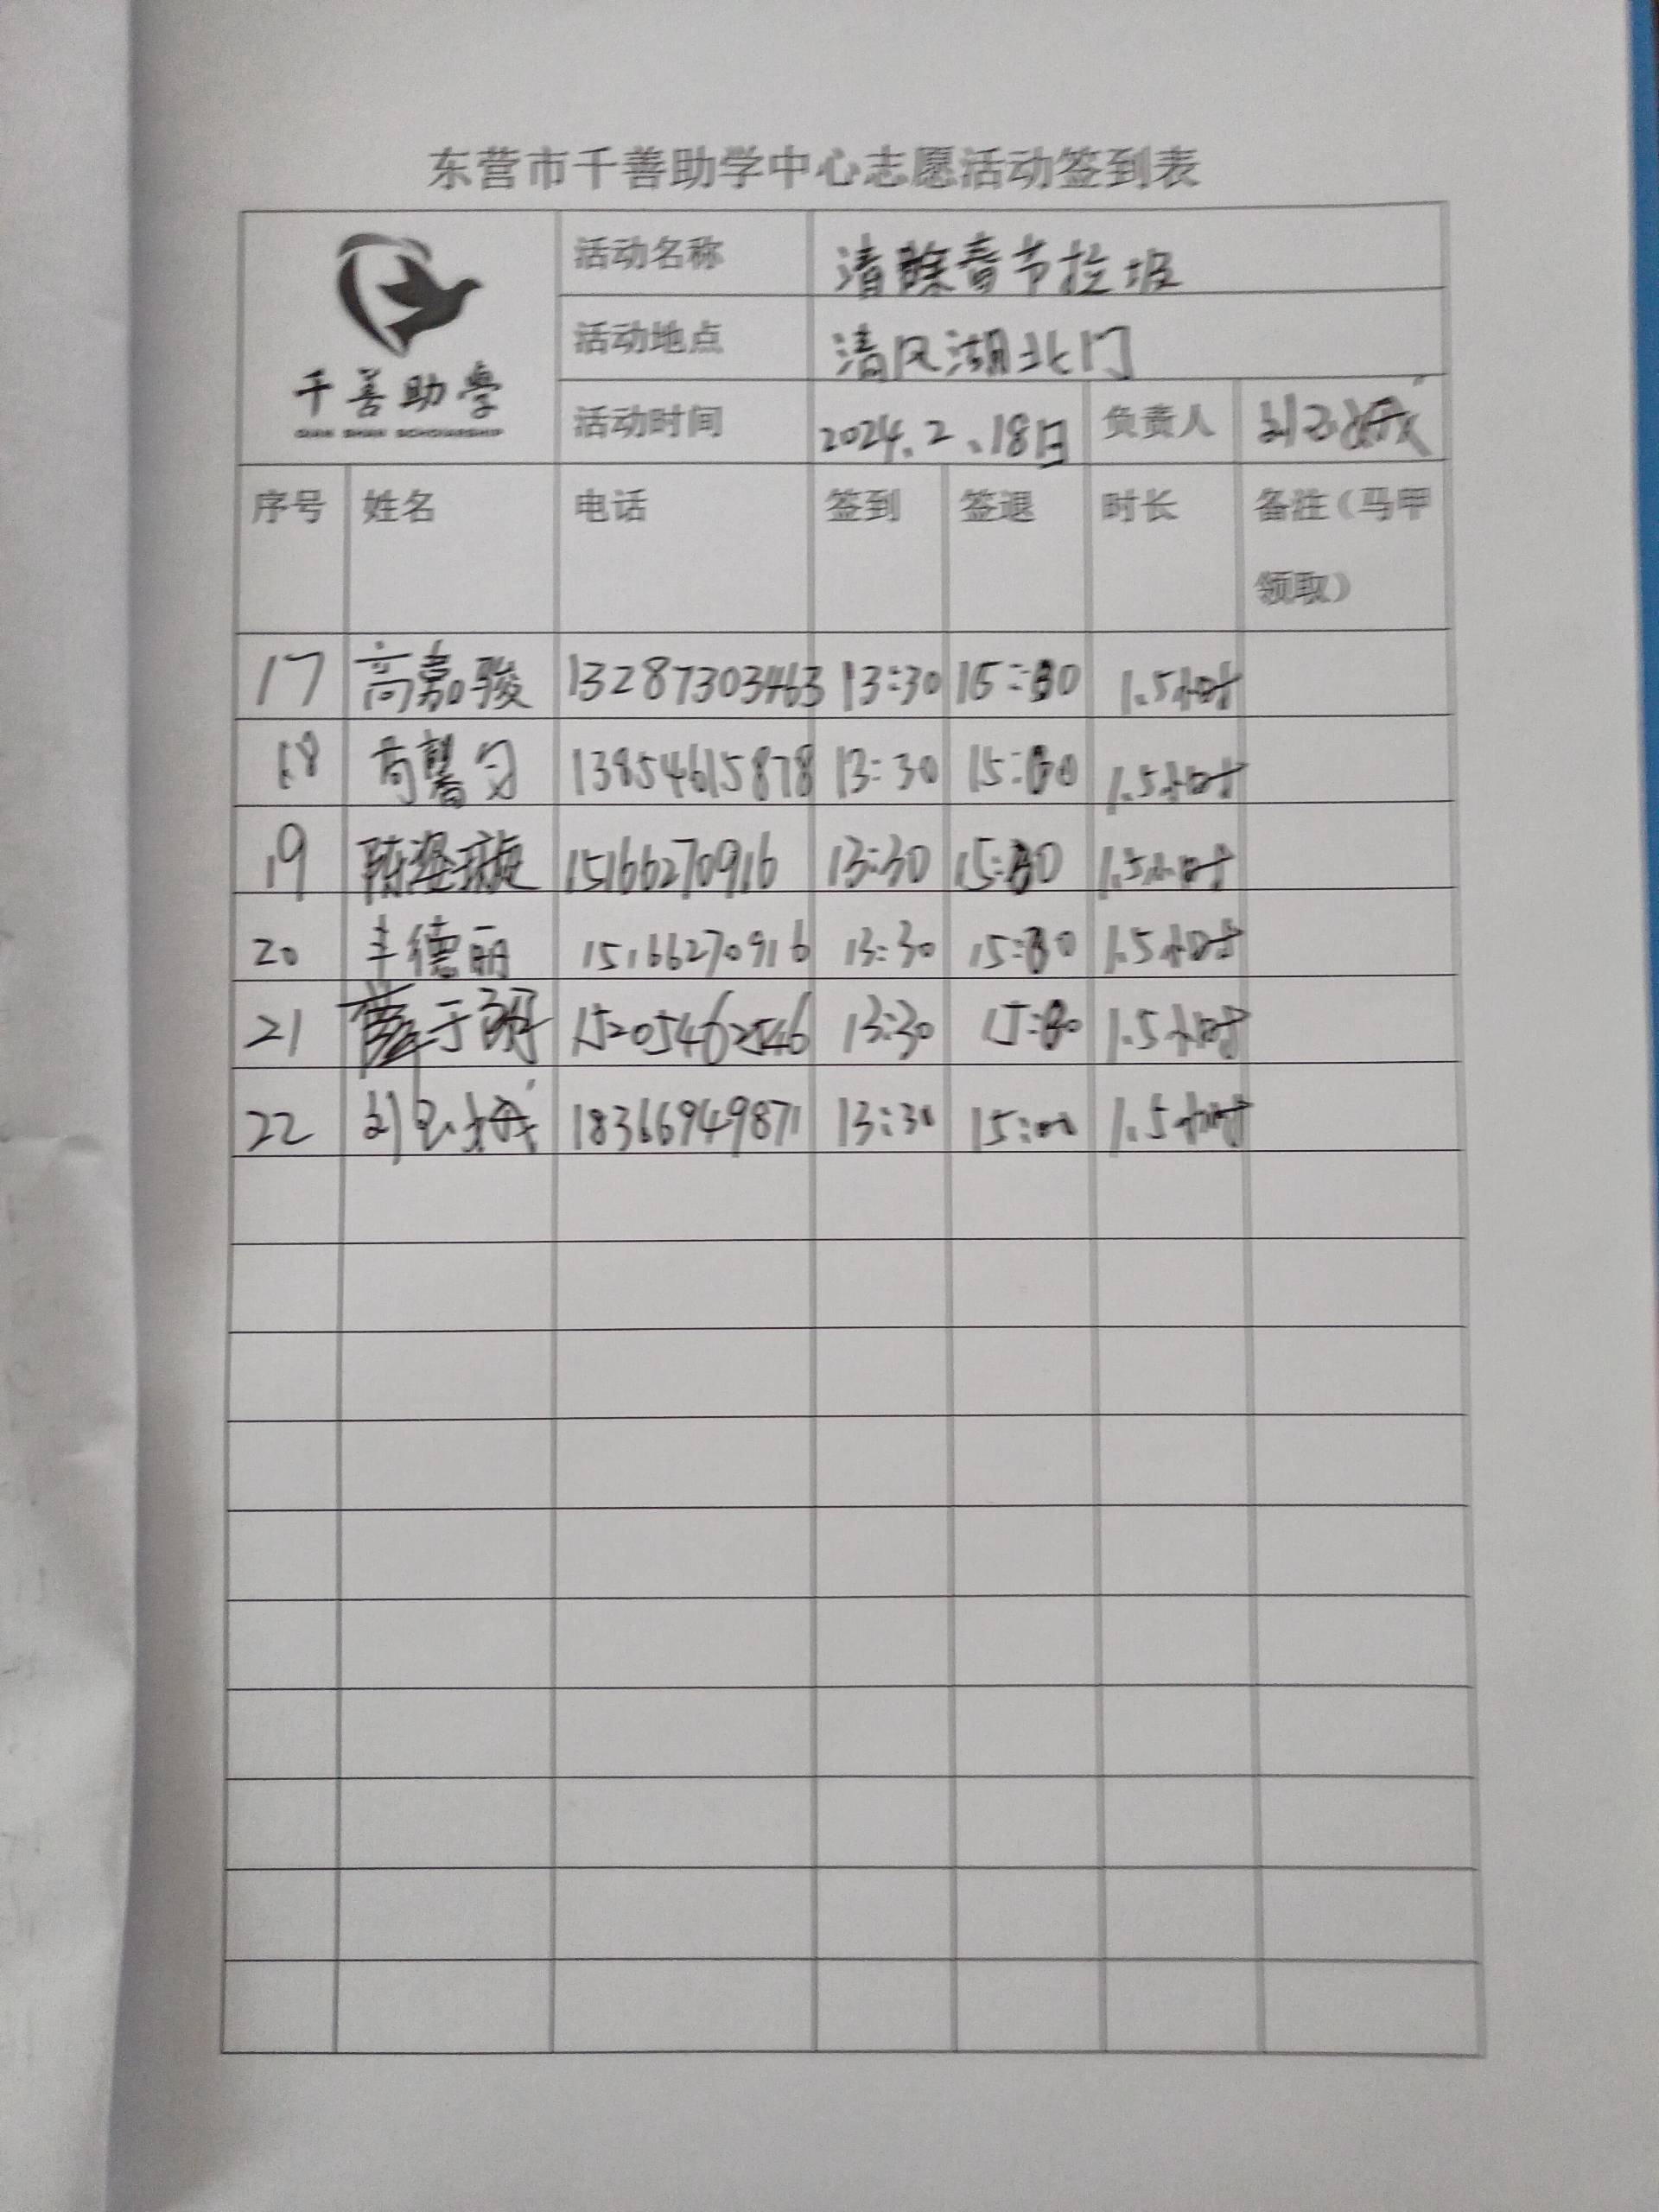 东营市千善助学中心志愿活动签到表
千善助學
QIAN SHAN SCHOLARSHIP
活动名称 清除春节垃圾
活动地点 清风湖北门
活动时间 2024.2.18日 负责人
序号 姓名 电话 签到 签退 时长 备注（马甲
领取）
17 高嘉骏 13287303463 13:30 15:00 1.5小时
18 高馨匀 13854615878 13:30 15:00 1.5小时
19 15166270916 13:30 15:00 1.5小时
20 丰德丽 15166270916 13:30 15:00 1.5小时
21 15205462546 13:30 15:00 1.5小时
22 18366949871 13:30 15:00 1.5小时